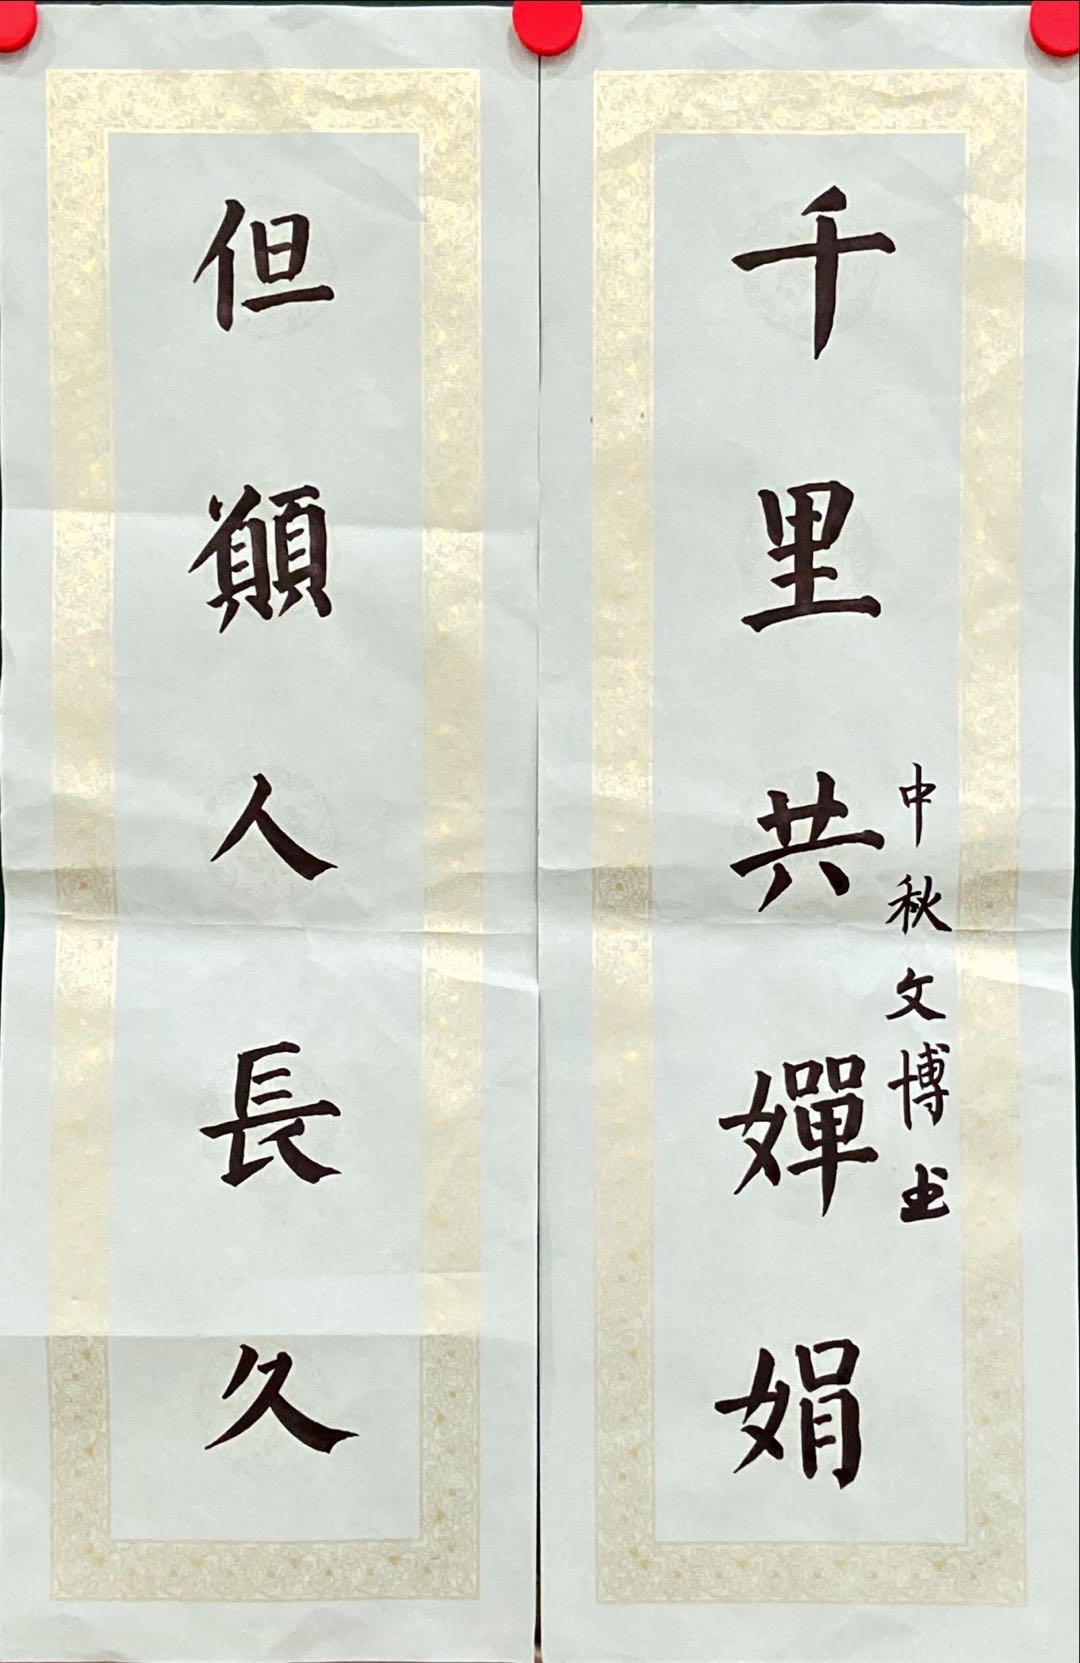 但願人長久
千里共嬋娟
中秋文博书